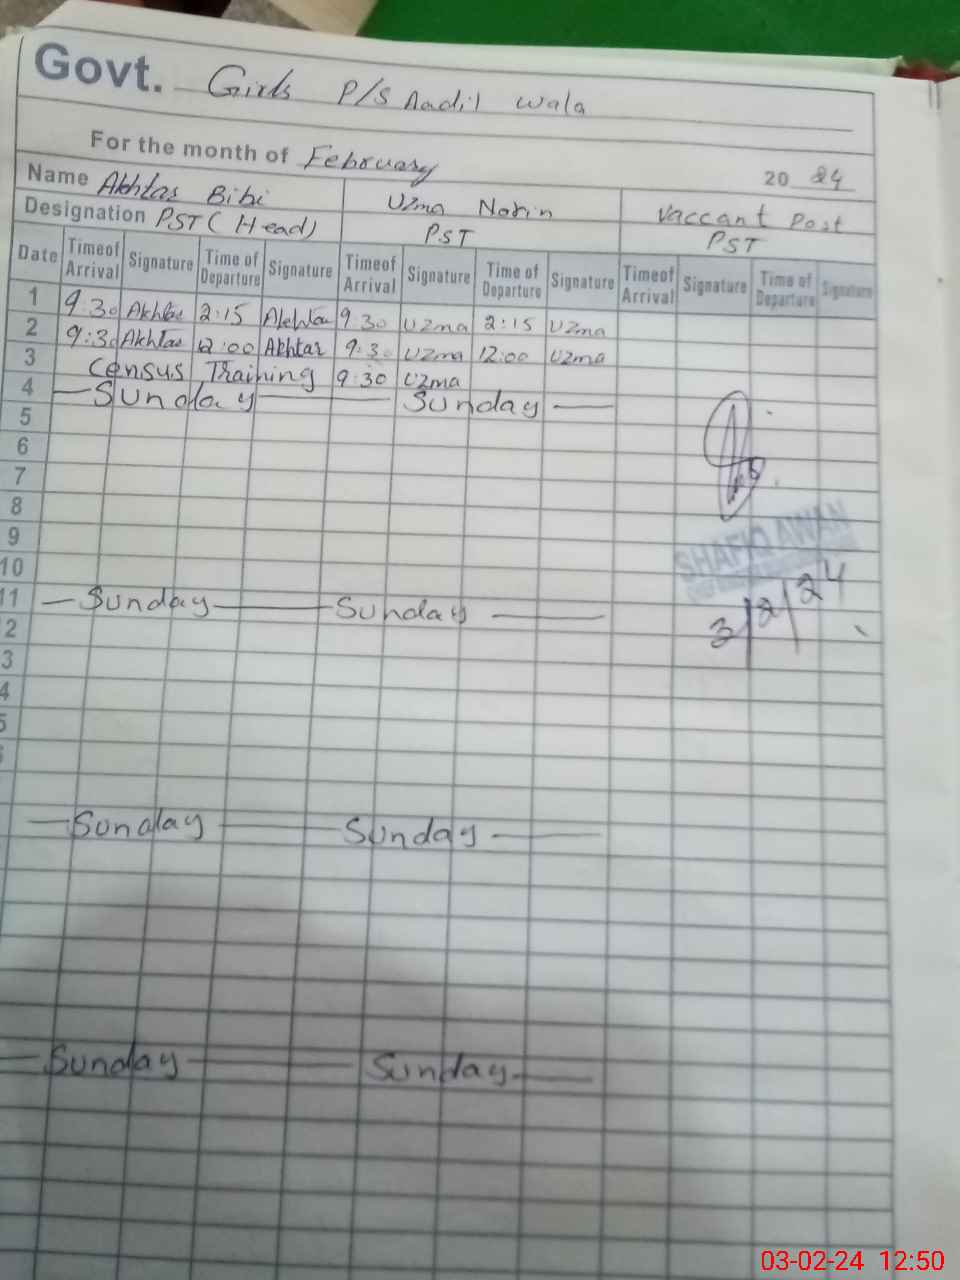 Govt. Girls P/S Aadil wala
For the month of February 2024
Name Akhtar Bibi Uzma Norin Vaccant Post
Designation PST (Head) PST PST
Date Timeof Arrival Signature Time of Departure Signature Timeof Arrival Signature Time of Departure Signature Timeof Arrival Signature Time of Departure Signature
1 9:30 Akhtar 2:15 Akhtar 9:30 Uzma 2:15 Uzma
2 9:30 Akhtar 12:00 Akhtar 9:30 Uzma 12:00 Uzma
3 Census Training 9:30 Uzma
4 Sunday Sunday
5
6
7
8
9
SHAFIQ AWAN
10
11 Sunday Sunday
3/2/24
2
3
4
5
Sunday Sunday
Sunday Sunday
03-02-24 12:50